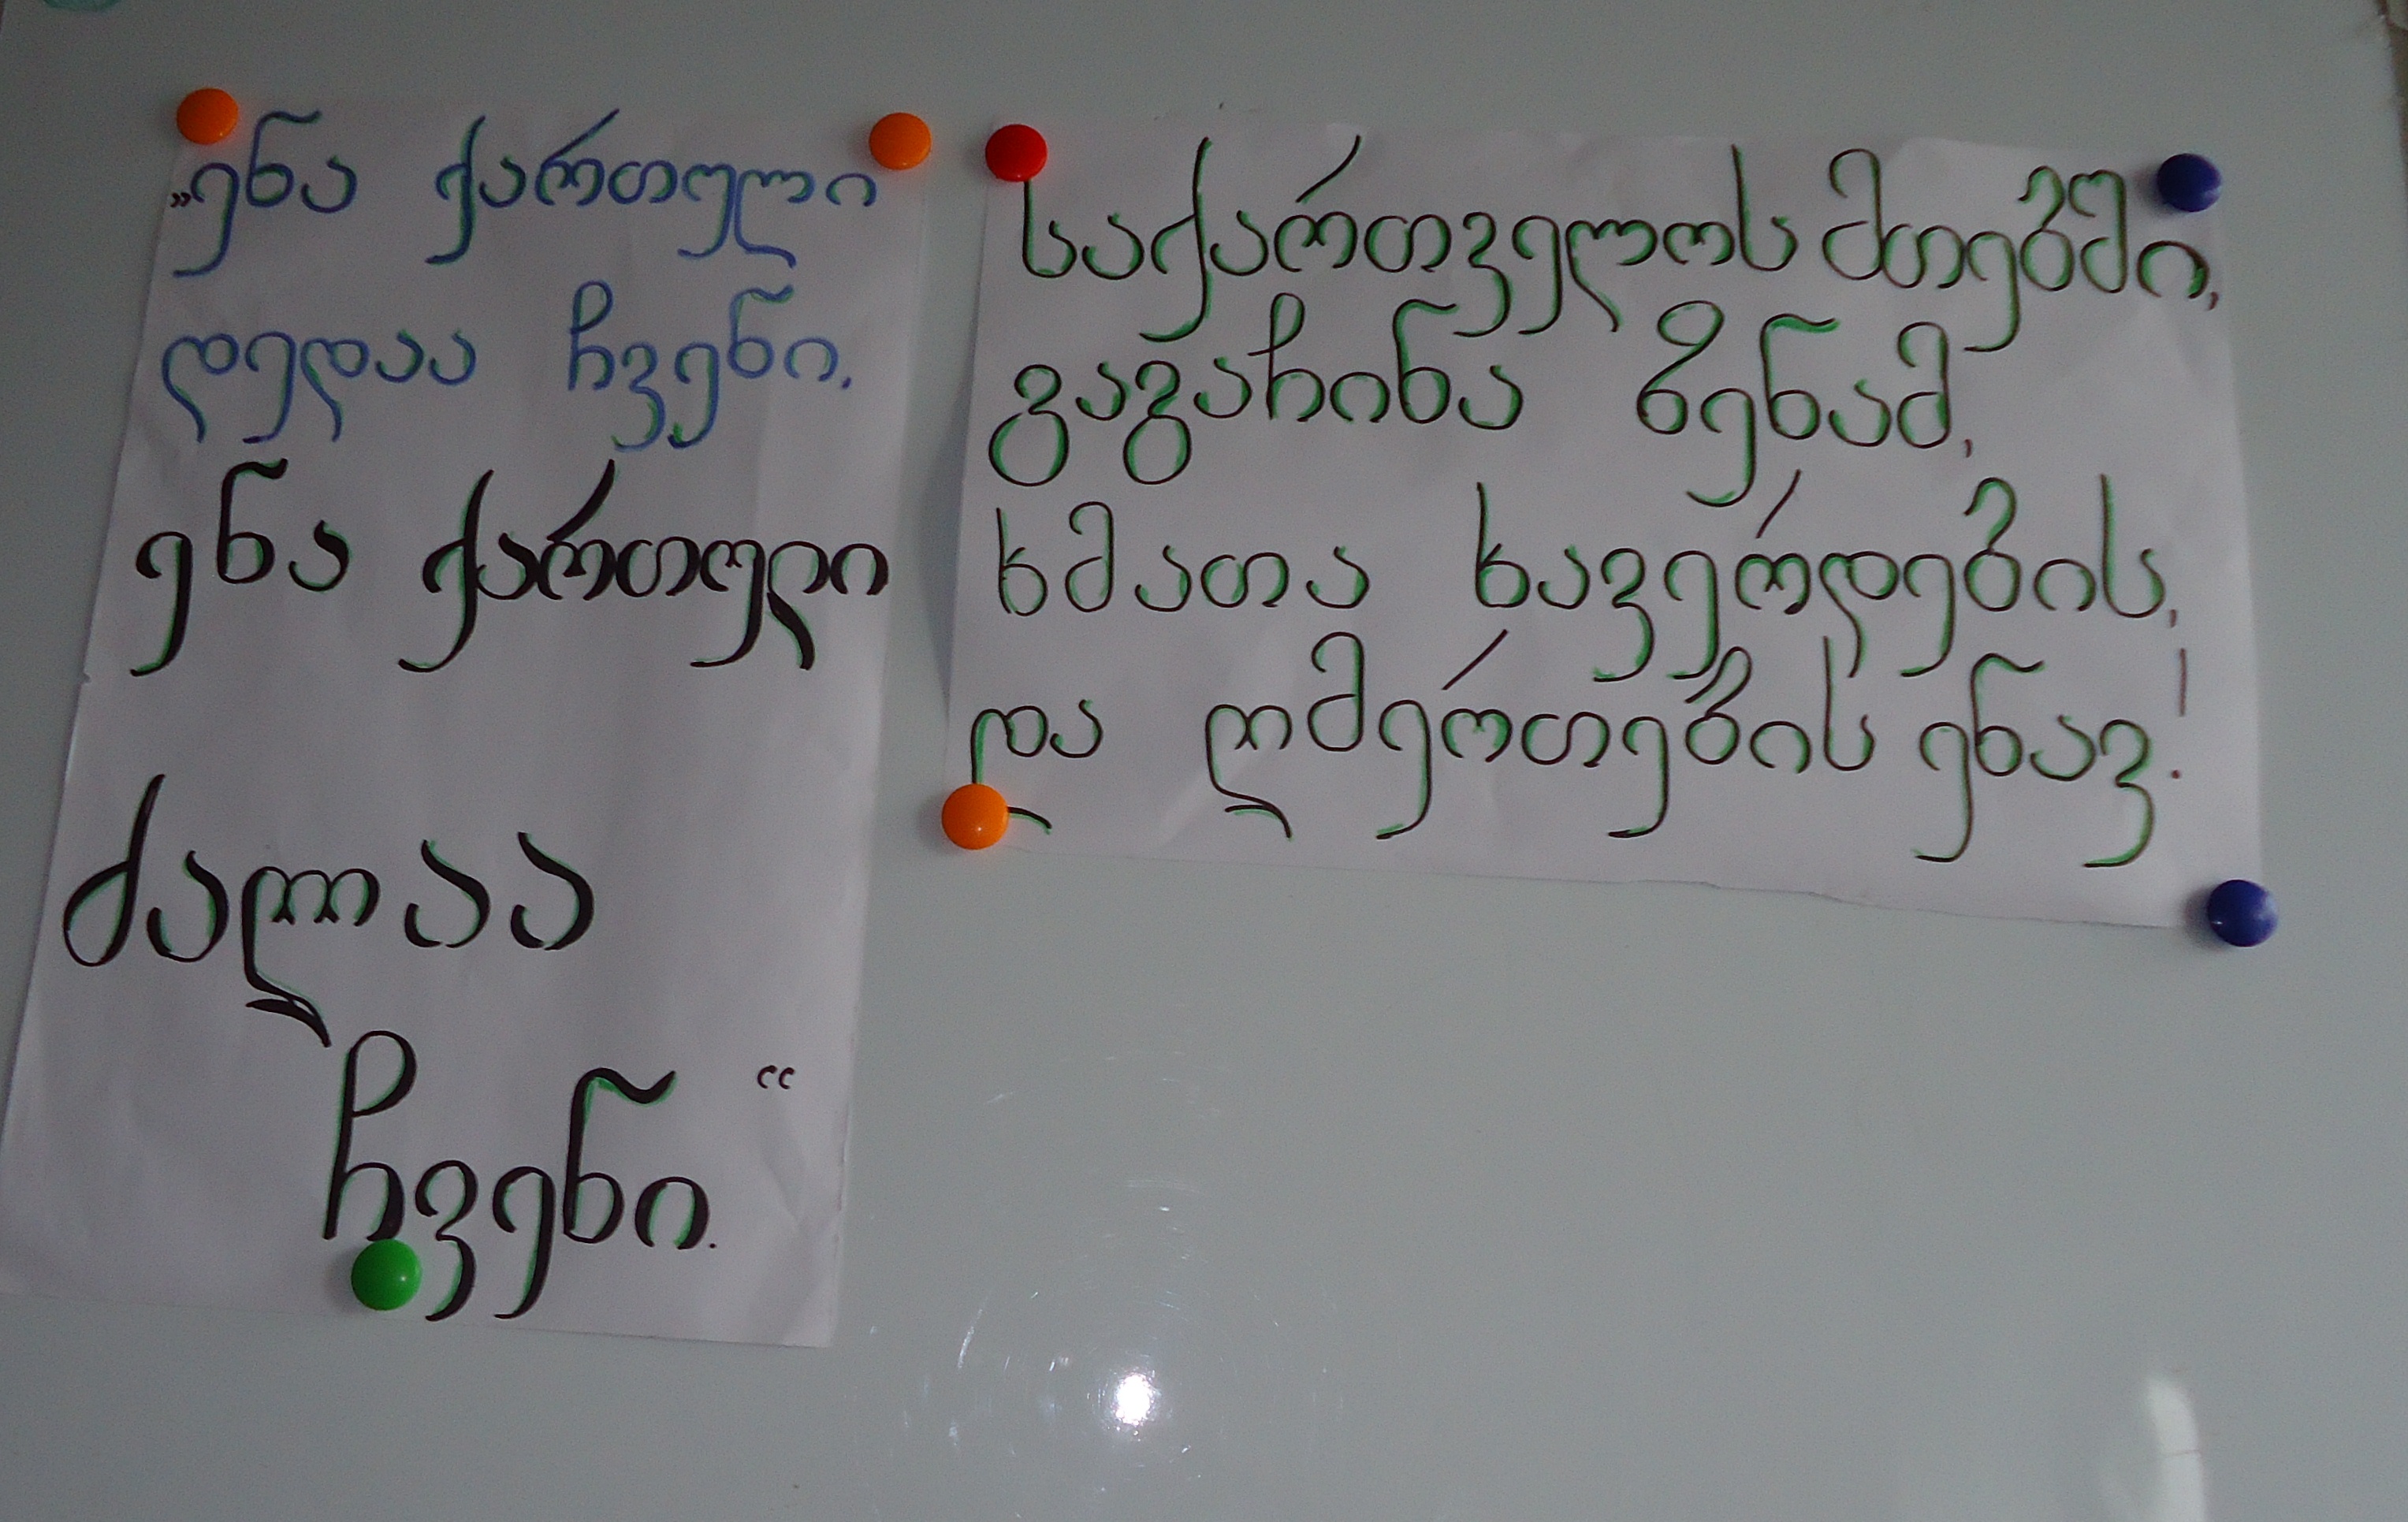 „ენა ქართული
დედაა ჩვენი,
ენა ქართული
ძალაა
ჩვენი.“
საქართველოს მთებში,
გაგაჩინა ზენამ,
ხმათა ხავერდების,
და ღმერთების ენავ!